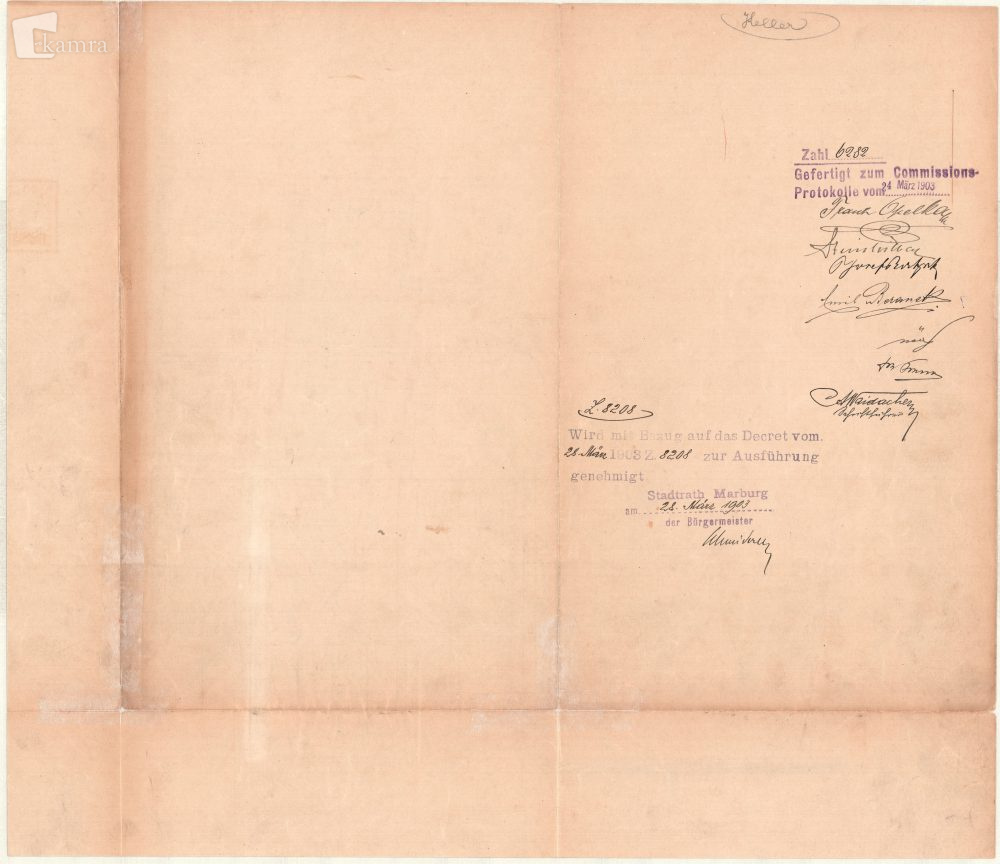 kamra
Heller
Zahl 6282
Gefertigt zum Commissions-
Protokolle vom 24 März 1903
Franz Opelka
Emil Beranek
A Waidacher
Schriftführer
Z. 8208
Wird mit Bezug auf das Decret vom.
28. März 1903 Z. 8208 zur Ausführung
genehmigt
Stadtrath Marburg
am 28. März 1903
der Bürgermeister